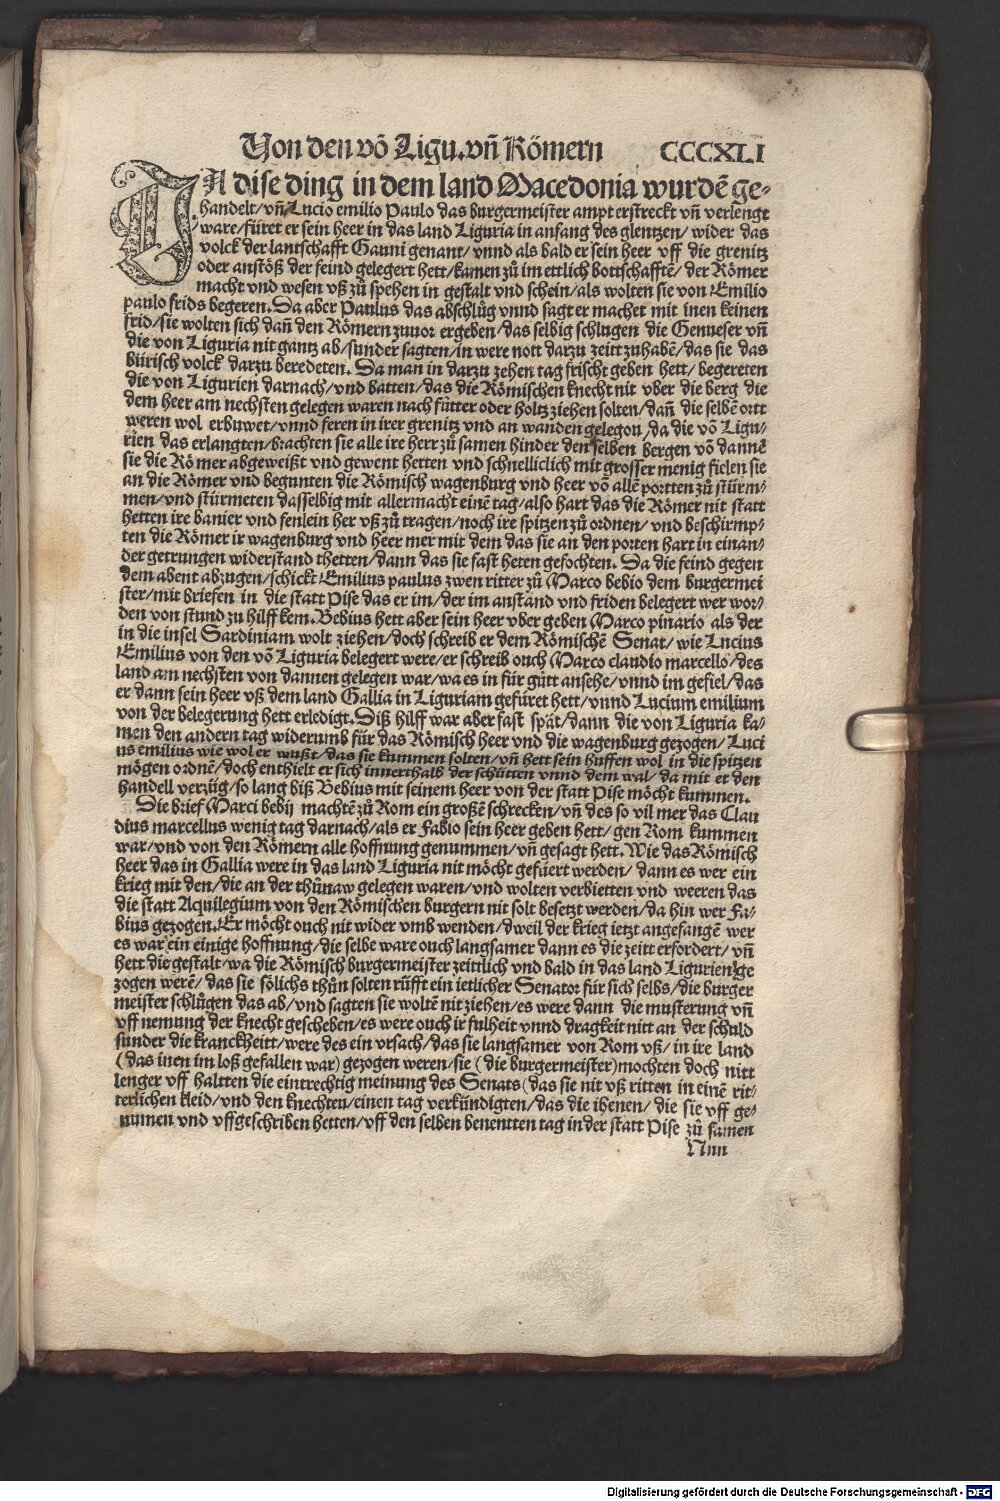 Von den võ Ligu. vñ Römern CCCXLI
DA dise ding in dem land Macedonia wurdẽ ge-
handelt/vñ Lucio emilio Paulo das burgermeister ampt erstreckt vñ verlengt
ware/fůret er sein heer in das land Liguria in anfang des glentzen/wider das
volck der lantschafft Gauni genant/vnnd als bald er sein heer vff die grenitz
oder anstöß der feind gelegert hett/kamen zů im ettlich bottschafftẽ/der Römer
macht vnd wesen vß zů spehen in gestalt vnd schein/als wolten sie von Emilio
paulo frids begeren. Da aber Paulus das abschlůg vnnd sagt er machet mit inen keinen
frid/sie wolten sich dañ den Römern zuuor ergeben/das selbig schlugen die Genueser vñ
die von Liguria nit gantz ab/sunder sagten/in were nott darzu zeitt zuhabẽ/das sie das
bürisch volck darzu beredeten. Da man in darzu zehen tag frischt geben hett/begereten
die von Ligurien darnach/vnd batten/das die Römischen knecht nit vber die berg die
dem heer am nechsten gelegen waren nach fůtter oder holtz ziehen solten/dañ die selbẽ ortt
weren wol erbuwet/vnnd feren in irer grenitz vnd an wanden gelegon/da die võ Ligu-
rien das erlangten/brachten sie alle ire herr zů samen hinder den selben bergen võ dannẽ
sie die Römer abgeweißt vnd gewent hetten vnd schnelliclich mit grosser menig fielen sie
an die Römer vnd begunten die Römisch wagenburg vnd heer võ allẽ portten zů stürm-
men/vnd stürmeten dasselbig mit aller macht einẽ tag/also hart das die Römer nit statt
hetten ire banier vnd fenlein her vß zů tragen/noch ire spitzen zů ordnen/vnd beschirmp-
ten die Römer ir wagenburg vnd heer mer mit dem das sie an den porten hart in einan-
der getrungen widerstand thetten/dann das sie fast heten gefochten. Da die feind gegen
dem abent abzugen/schickt Emilius paulus zwen ritter zů Marco bebio dem burgermei
ster/mit briefen in die statt Pise das er im/der im anstand vnd friden belegert wer wor-
den von stund zu hilff kem. Bebius hett aber sein heer vber geben Marco pinario als der
in die insel Sardiniam wolt ziehen/doch schreib er dem Römischẽ Senat/wie Lucius
Emilius von den võ Liguria belegert were/er schreib ouch Marco claudio marcello/des
land am nechsten von dannen gelegen war/wa es in für gůtt ansehe/vnnd im gefiel/das
er dann sein heer vß dem land Gallia in Liguriam gefüret hett/vnnd Lucium emilium
von der belegerung hett erledigt. Diß hilff war aber fast spåt/dann die von Liguria ka-
men den andern tag widerumb für das Römisch heer vnd die wagenburg gezogen/Luci
us emilius wie wol er wußt/das sie kummen solten/vñ hett sein huffen wol in die spitzen
mögen ordnẽ/doch enthielt er sich innerthalb der schütten vnnd dem wal/da mit er den
handell verzüg/so lang biß Bebius mit seinem heer von der statt Pise möcht kummen.
Die brief Marci bebij machtẽ zů Rom ein großẽ schrecken/vñ des so vil mer das Clau
dius marcellus wenig tag darnach/als er Fabio sein heer geben hett/gen Rom kummen
war/vnd von den Römern alle hoffnung genummen/vñ gesagt hett. Wie das Römisch
heer das in Gallia were in das land Liguria nit möcht gefůert werden/dann es wer ein
krieg mit den/die an der thůnaw gelegen waren/vnd wolten verbietten vnd weeren das
die statt Aquilegium von den Römischen burgern nit solt besetzt werden/da hin wer Fa-
bius gezogen. Er möcht ouch nit wider vmb wenden/dweil der krieg ietzt angefangẽ wer
es war ein einige hoffnung/die selbe ware ouch langsamer dann es die zeitt erfordert/vñ
hett die gestalt/wa die Römisch burgermeister zeittlich vnd bald in das land Ligurien ge
zogen werẽ/das sie sölichs thůn solten růfft ein ietlicher Senator für sich selbs/die burger
meister schlůgen das ab/vnd sagten sie woltẽ nit ziehen/es were dann die musterung vñ
vff nemung der knecht geschehen/es were ouch ir fulheit vnnd dragkeit nitt an der schuld
sunder die kranckheitt/were des ein vrsach/das sie langsamer von Rom vß/in ire land
(das inen im loß gefallen war) gezogen weren/sie (die burgermeister) mochten doch nitt
lenger vff haltten die eintrechtig meinung des Senats (das sie nit vß ritten in einẽ rit-
terlichen kleid/vnd den knechten/einen tag verkündigten/das die ihenen/die sie vff ge-
numen vnd vffgeschriben hetten/vff den selben benentten tag in der statt Pise zů samen
Nnn
Digitalisierung gefördert durch die Deutsche Forschungsgemeinschaft - DFG